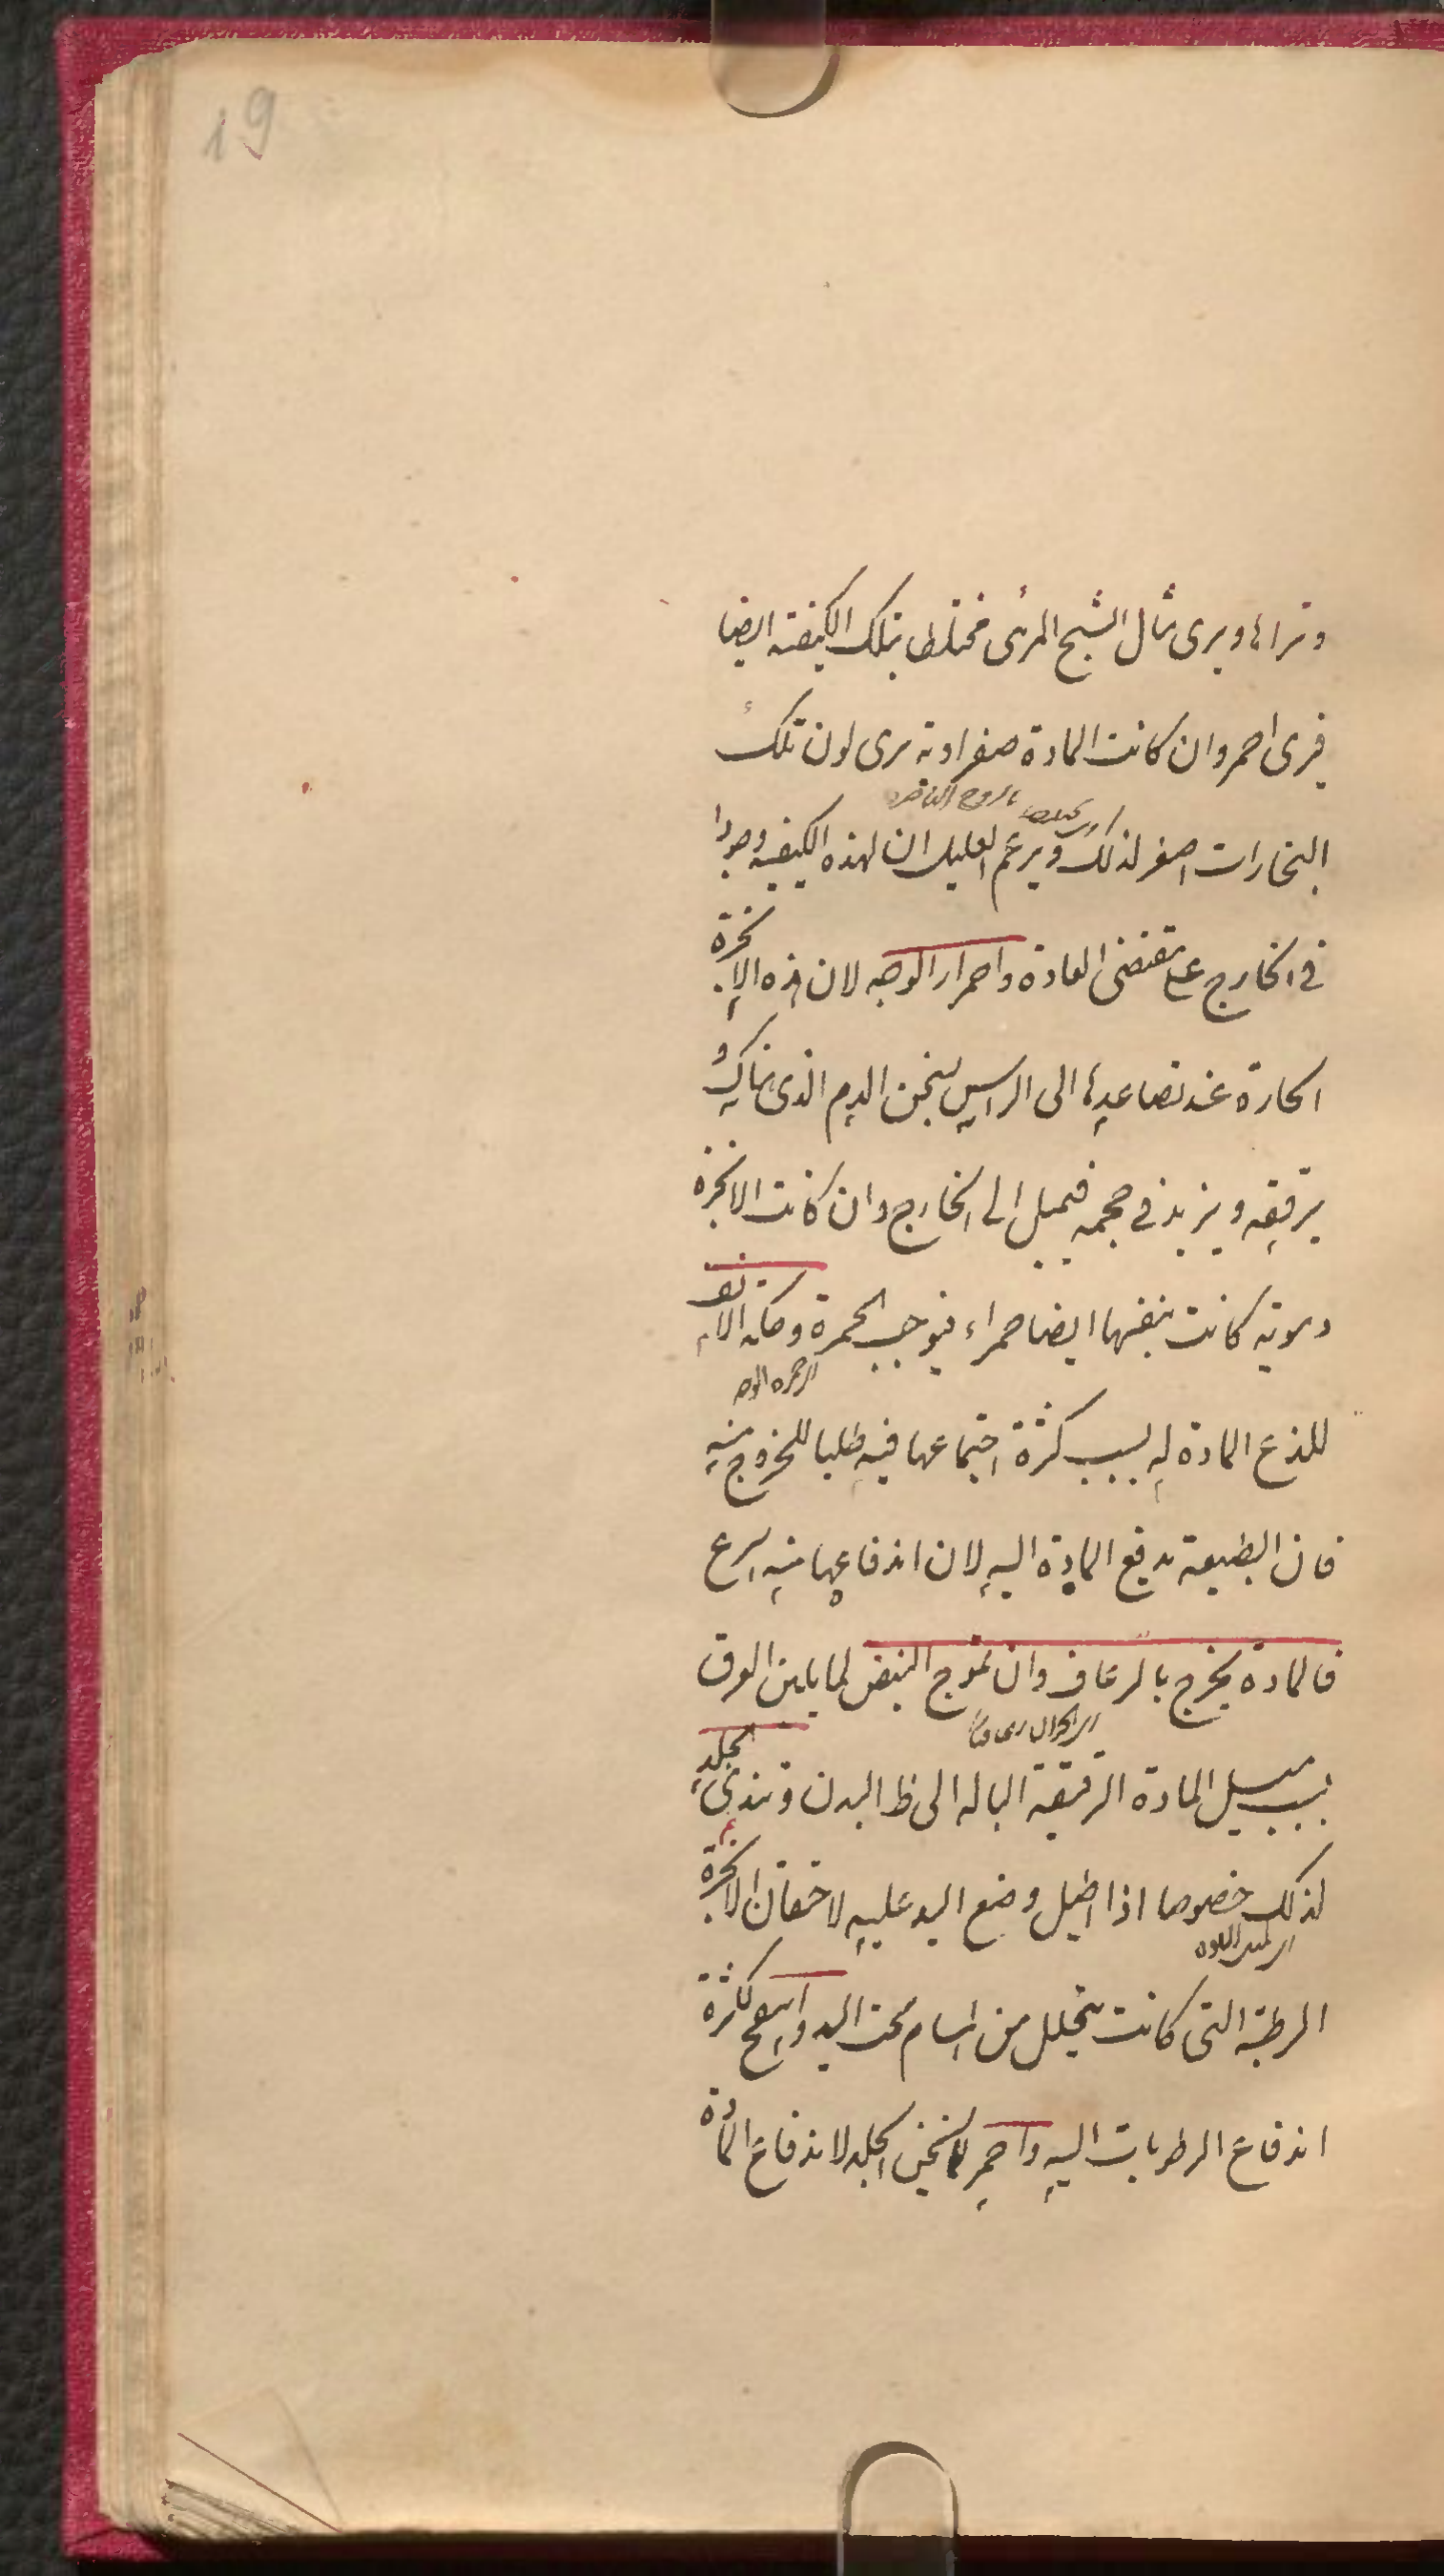 19
وتراها ويرى مثال الشبح المرئى مختلطا بتلك الكيفية ايضا
فيرى احمر وان كانت المادة صفراوية يرى لون تلك
البخارات اصفر لذلك ويزعم العليل ان لهذه الكيفية وجودا
فى الخارج على مقتضى العادة واحمرار الوجه لان هذه الابخرة
الحارة عند تصاعدها الى الراس يسخن الدم الذى هناك و
يرققه ويزيد فى حجمه فيميل الى الخارج وان كانت الابخرة
دموية كانت بنفسها ايضا حمراء فيوجب الحمرة وحكة الانف
للذع المادة له بسبب كثرة اجتماعها فيه طلبا للخروج منه
فان الطبيعة يدفع المادة اليه لان اندفاعها منه اسرع
فالمادة يخرج بالرعاف وان تموج النبض لما يلين العرق
بسبب ميل المادة الرقيقة البالة الى ظ البدن وتندى الجلد
لذلك خصوصا اذا اطيل وضع اليد عليه لاحتقان الابخرة
الرطبة التى كانت يتحلل من المسام تحت اليد وانتفخ لكثرة
اندفاع الرطوبات اليه واحمر لتسخن الجلد لاندفاع المادة